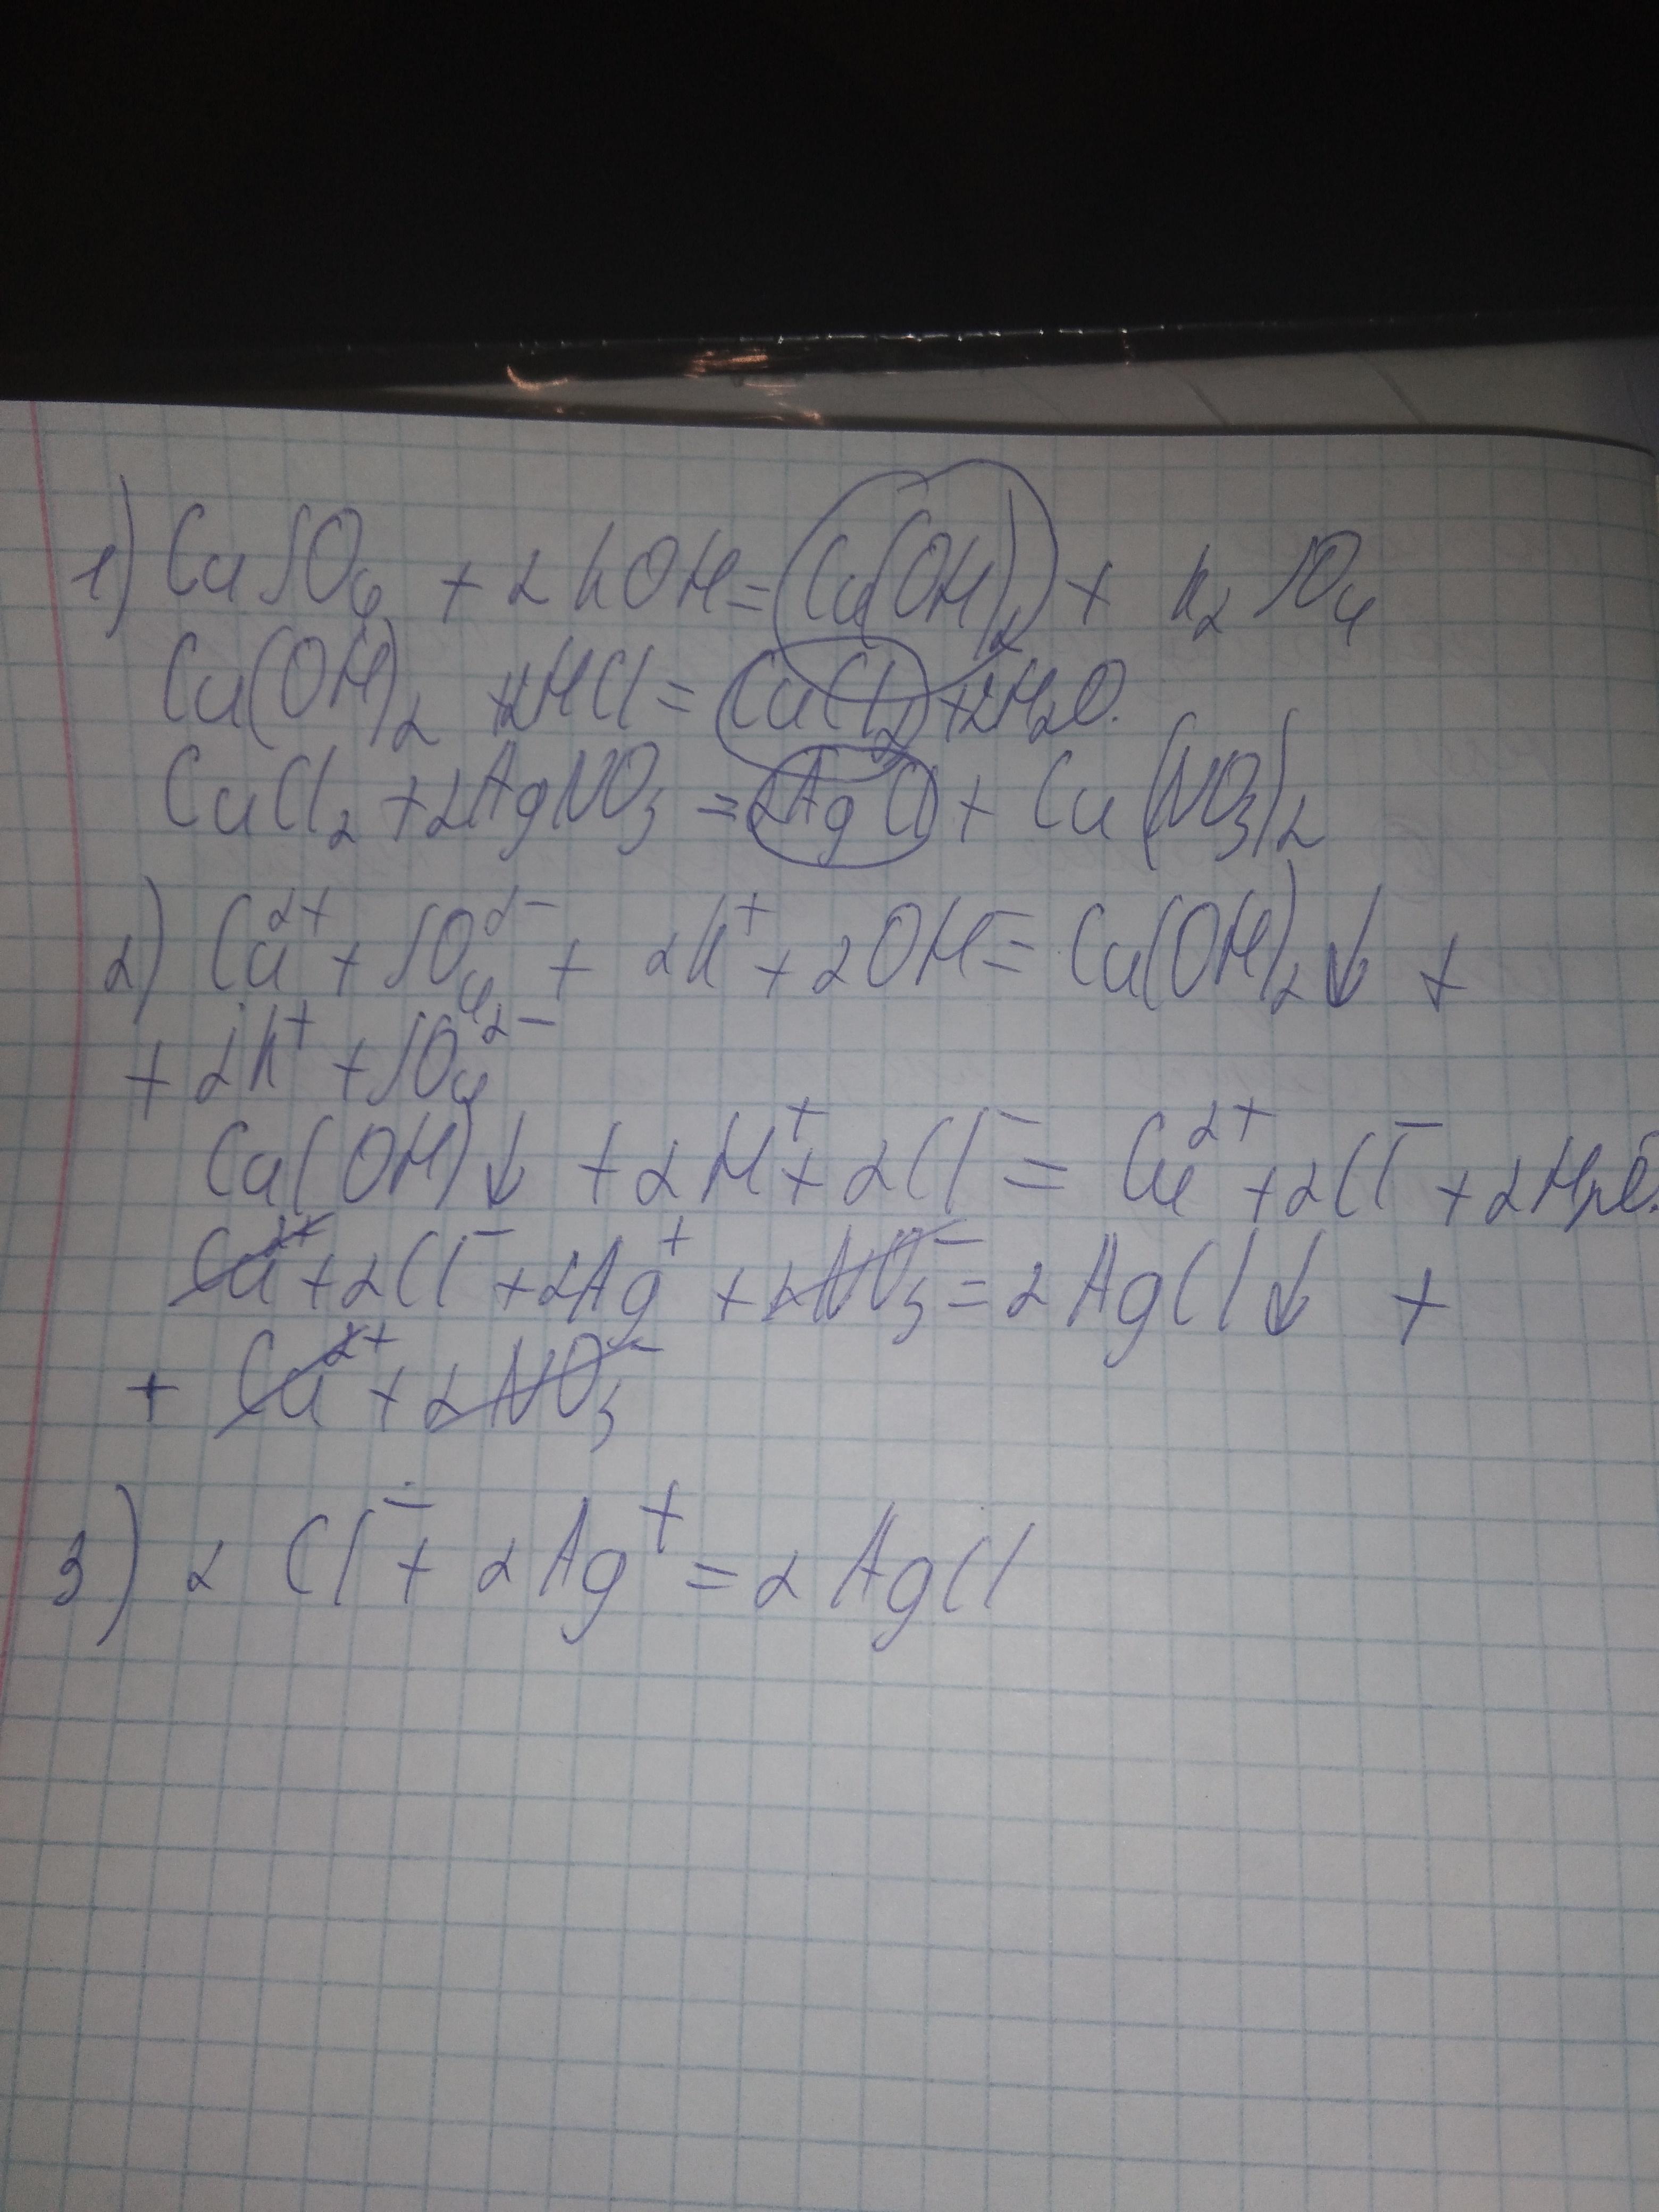 1) CuSO₄ + 2KOH = Cu(OH)₂ + K₂SO₄
Cu(OH)₂ + 2HCl = CuCl₂ + 2H₂O.
CuCl₂ + 2AgNO₃ = 2AgCl + Cu(NO₃)₂
2) Cu²⁺ + SO₄²⁻ + 2K⁺ + 2OH⁻ = Cu(OH)₂↓ +
+ 2K⁺ + SO₄²⁻
Cu(OH)↓ + 2H⁺ + 2Cl⁻ = Cu²⁺ + 2Cl⁻ + 2H₂O.
Cu²⁺ + 2Cl⁻ + 2Ag⁺ + 2NO₃⁻ = 2AgCl↓ +
+ Cu²⁺ + 2NO₃⁻
3) 2Cl⁻ + 2Ag⁺ = 2AgCl